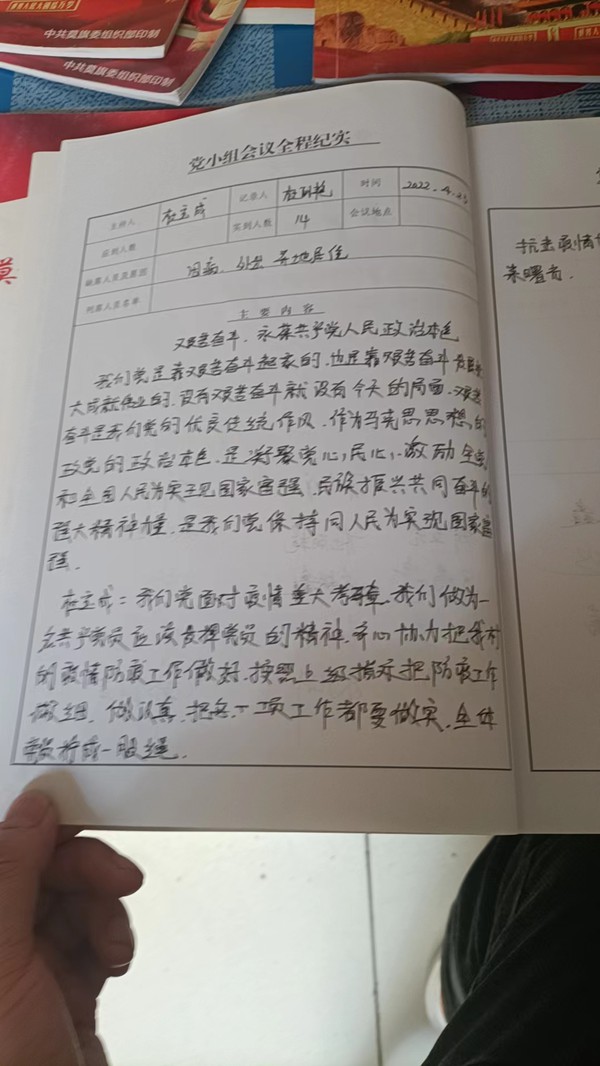 中共莫旗委组织部印制
中共莫旗委组织部印制
党小组会议全程纪实
主持人 杜主成 记录人 时间 2022.4.25
应到人数 实到人数 14 会议地点
缺席人员及原因 因病、外出 异地居住
列席人员名单
主要内容
艰苦奋斗、永葆共产党人民政治本色
我们党是靠艰苦奋斗起家的,也是靠艰苦奋斗发展
大成就伟业的,没有艰苦奋斗就没有今天的局面,艰苦
奋斗是我们党的优良传统作风,作为马克思思想的
政党的政治本色,是凝聚党心,民心,激励全党
和全国人民为实现国家富强、民族振兴共同奋斗的
强大精神,是我们党保持同人民为实现国家富
强。
杜主成:我们党面对疫情重大考验,我们做为一
名共产党员应该发挥党员的精神,齐心协力把我村
的疫情防疫工作做好,按照上级指示把防疫工作
做细、做认真,把每一项工作都要做实,全体
党员拧成一股绳。
抗击疫情
来曙光.